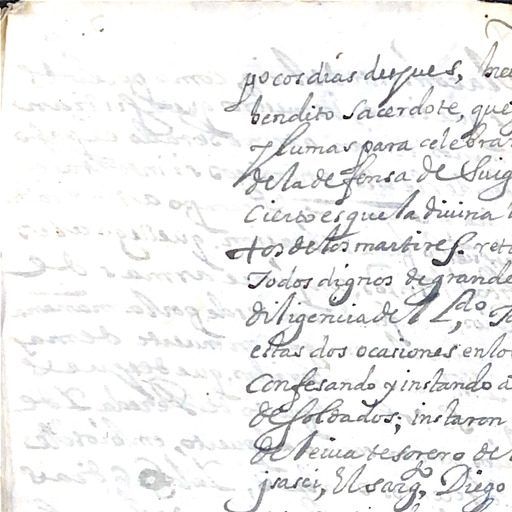 pocos días despues, bre
bendito sacerdote, que
plumas para celebrar
de la defensa de su ig
Cierto es que la divina
tos de los martires. ret
Todos dignos de grande
diligencia del L.do To
estas dos ocasiones en lo
Confesando y instando a
de soldados; instaron
de leiva tesorero de
jsasi, El sarg.to Diego